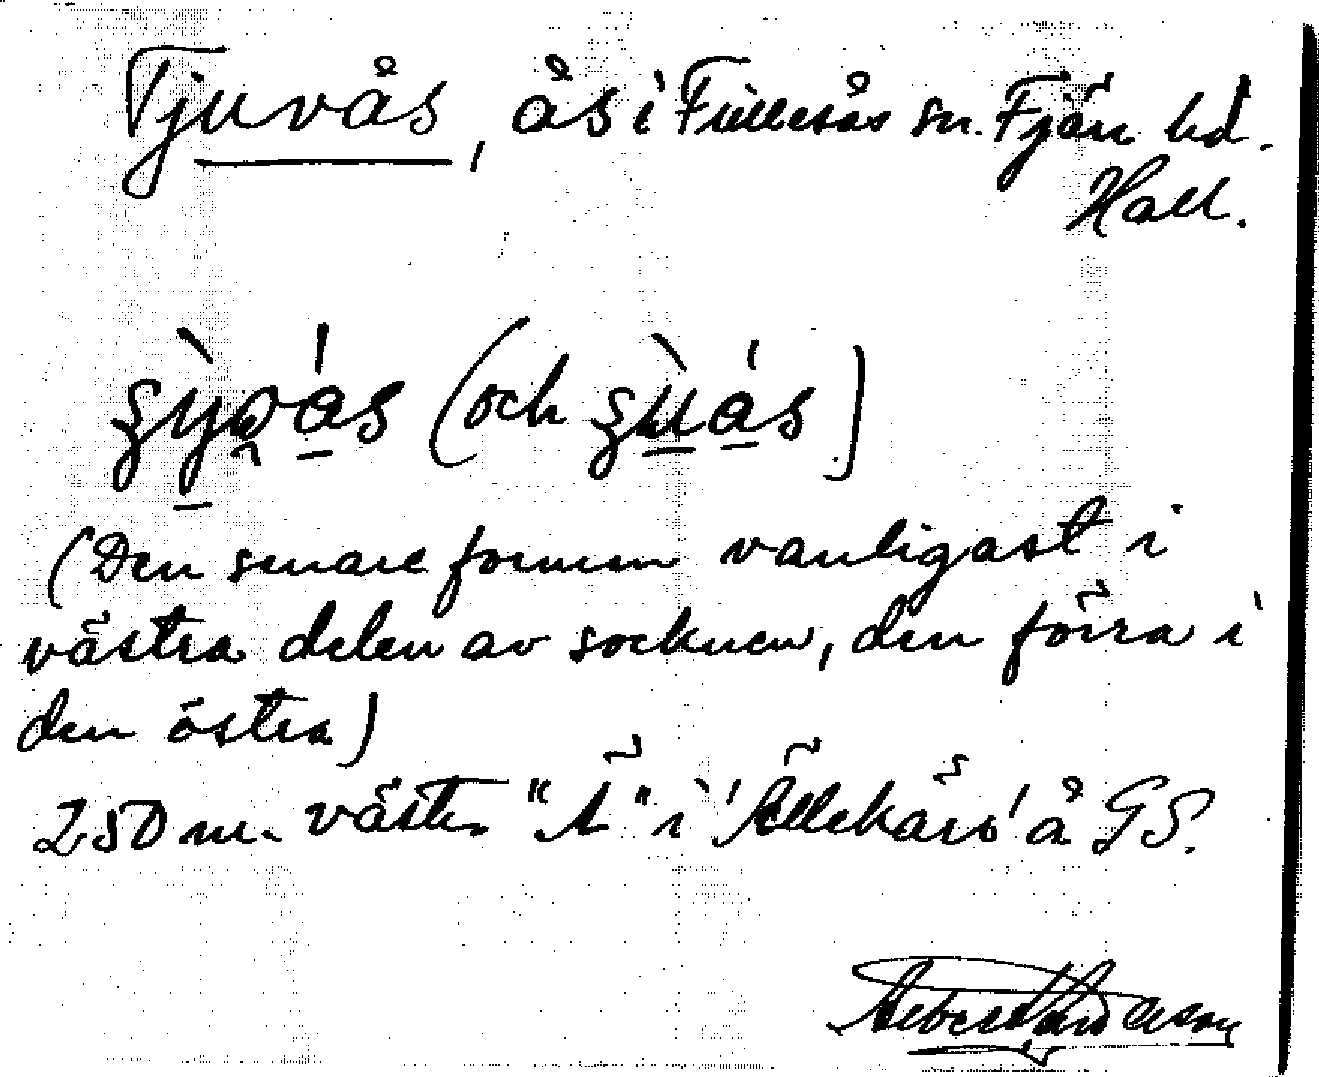 Tjuvås, ås i Fillesås sn. Fjäre hd.
Hall.
(och
(Den senare formen vanligast i
västra delen av socknen, den förra i
den östra)
250 m. väster "Ä" i 'Ällekärs' å GS.